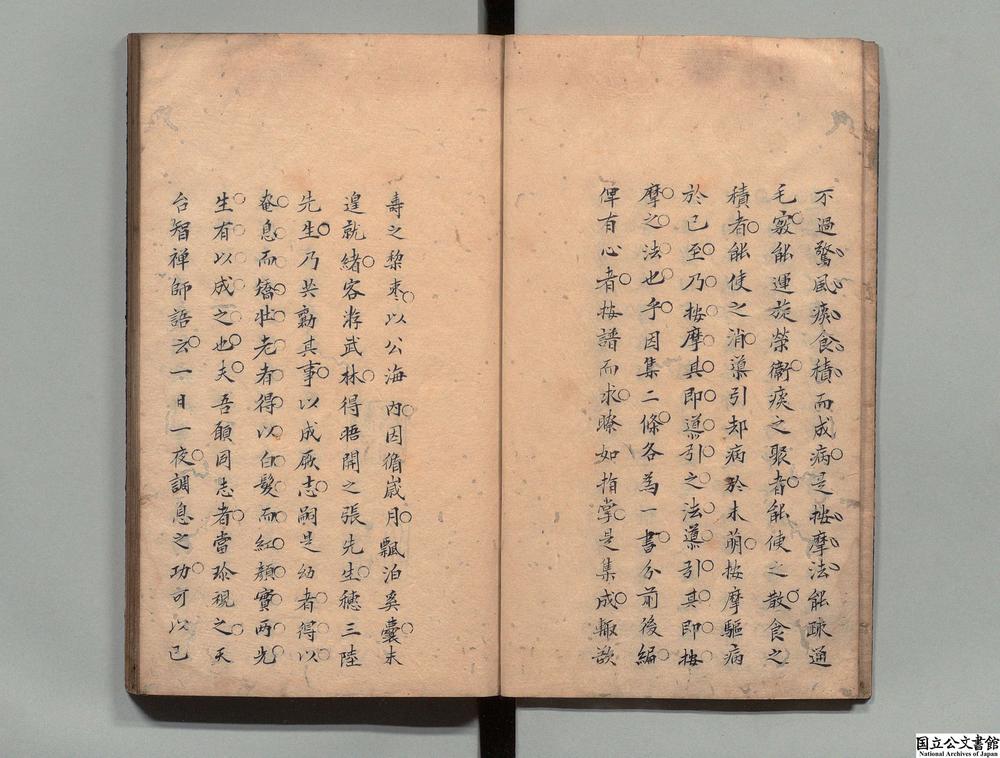 不過驚風痰食積而成病是按摩法能疎通
毛竅能運旋榮衛痰之聚者能使之散食之
積者能使之消導引却病於未萌按摩驅病
於已至乃按摩其即導引之法導引其即按
摩之法也乎因集二條各為一書分前後編
俾有心者按譜而求瞭如指掌是集成輙欲
壽之黎棗以公海內因循歲月飄泊奚囊未
遑就緒客游武林得晤開之張先生穗三陸
先生乃共勷其事以成厥志嗣是幼者得以
奄息而矯壯老者得以白髮而紅顏實兩先
生有以成之也夫吾願同志者當珍視之天
台智禪師語云一日一夜調息之功可以已
国立公文書館
National Archives of Japan